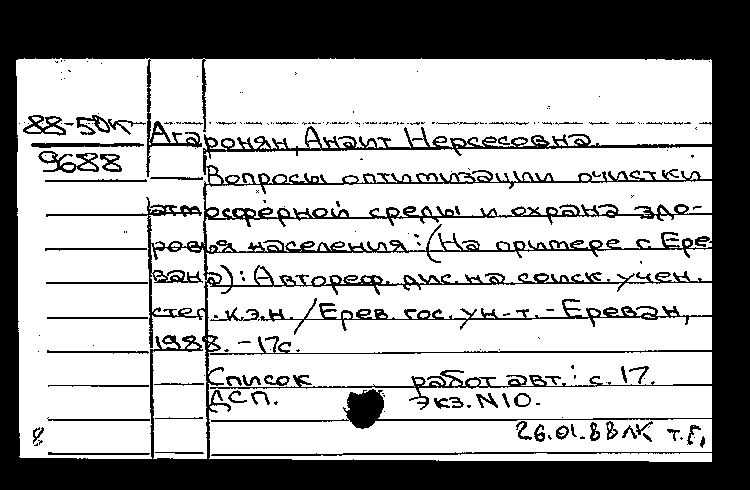 88-50К Агаронян, Анаит Нерсесовна.
9688
Вопросы оптимизации очистки
атмосферной среды и охрана здо-
ровья населения: (На примере г. Ере-
вана): Автореф. дис. на соиск. учен.
степ. к.э.н. / Ерев. гос. ун-т. - Ереван,
1988. - 17с.
Список работ авт.: с. 17.
ДСП. Экз. N10.
8 26.01.88 ЛК т.г,